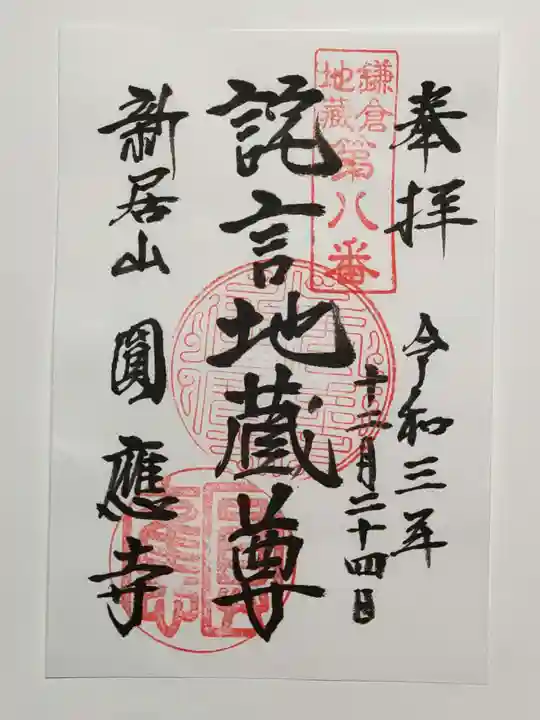 奉拝
令和三年
十二月二十四日
鎌倉
地蔵
第八番
詫言地蔵尊
新居山 圓應寺